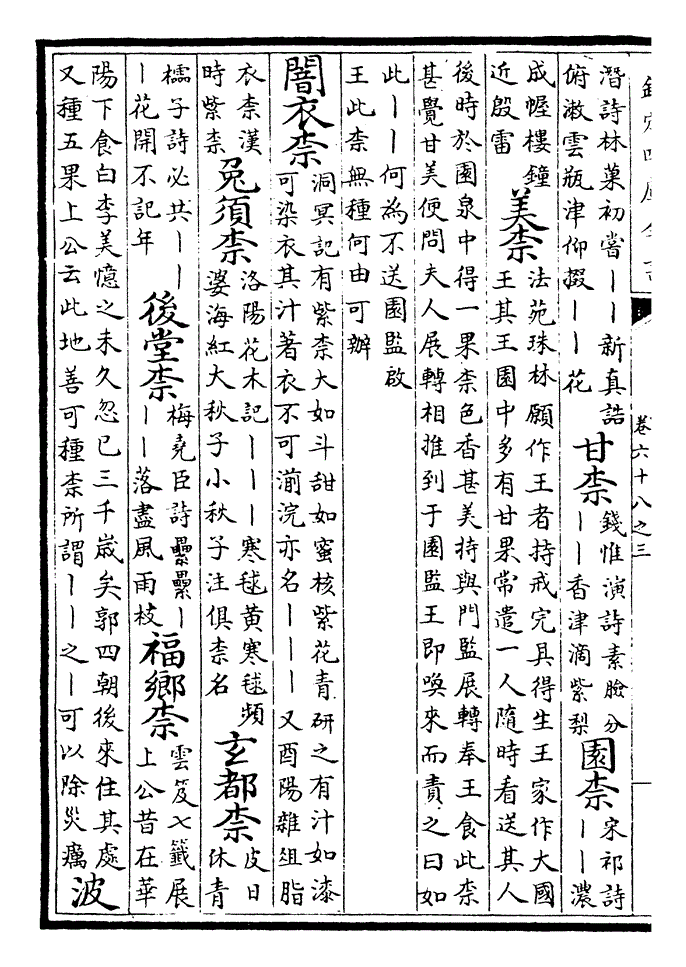 欽定四庫全書
卷六十八之三
潛詩林菓初嘗丨丨新真誥
俯漱雲瓶津仰掇丨丨花
甘柰
錢惟演詩素臉分
丨丨香津滴紫梨
園柰
宋祁詩
丨丨濃
成幄樓鐘
近殷雷
美柰
法苑珠林願作王者持戒完具得生王家作大國
王其王園中多有甘果常遣一人隨時看送其人
後時於園泉中得一果柰色香甚美持與門監展轉奉王食此柰
甚覺甘美便問夫人展轉相推到于園監王即喚來而責之曰如
此丨丨何為不送園監啟
王此柰無種何由可辦
闇衣柰
洞冥記有紫柰大如斗甜如蜜核紫花青研之有汁如漆
可染衣其汁著衣不可湔浣亦名丨丨丨又酉陽雜俎脂
衣柰漢
時紫柰
兔須柰
洛陽花木記丨丨丨寒毬黄寒毬頻
婆海紅大秋子小秋子注俱柰名
玄都柰
皮日
休青
檽子詩必共丨丨
丨花開不記年
後堂柰
梅堯臣詩纍纍丨
丨丨落盡風雨枝
福鄉柰
雲笈七籤展
上公昔在華
陽下食白李美憶之未久忽已三千歲矣郭四朝後來住其處
又種五果上公云此地善可種柰所謂丨丨之丨可以除災癘
波